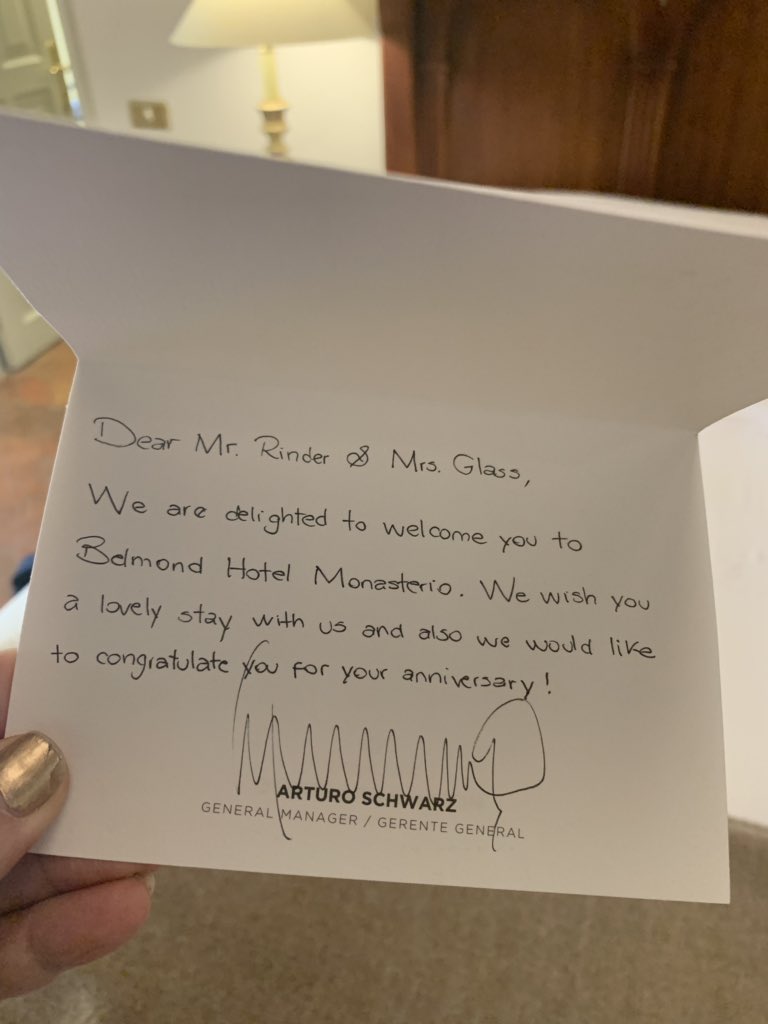 Dear Mr. Rinder & Mrs. Glass,
We are delighted to welcome you to
Belmond Hotel Monasterio. We wish you
a lovely stay with us and also we would like
to congratulate you for your anniversary!
ARTURO SCHWARZ
GENERAL MANAGER / GERENTE GENERAL